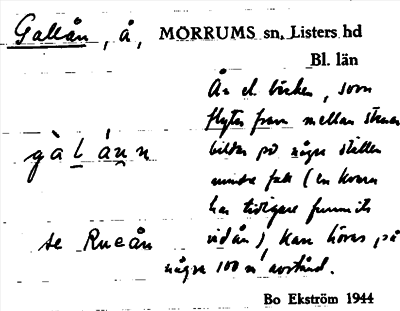 Gallån, å, MÖRRUMS sn, Listers hd
Bl. län
Ån el. bäcken, som
flyter fram mellan stenar
bildar på några ställen
mindre fall (en kvarn
har tidigare funnits
vid ån), kan höras på
några 100 m avstånd.
gàlánn
se Rueån
Bo Ekström 1944